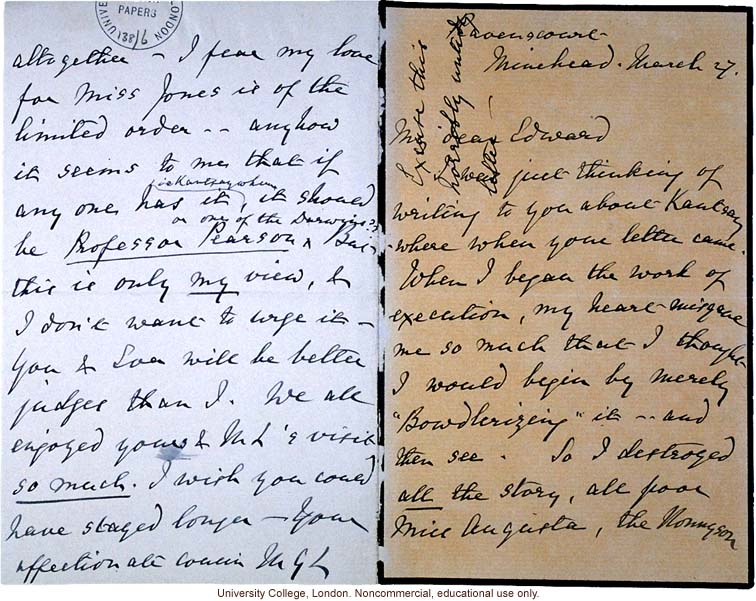 UNIVERSITY
LONDON
PAPERS
138/6
altogether – I fear my love
for Miss Jones is of the
limited order -- anyhow
it seems to me that if
i.e Kantsaywhere
any one has it, it should
or one of the Darwins?
be Professor Pearson x But
this is only my view, &
I don't want to urge it –
you & Eva will be better
judges than I. We all
enjoyed yours & ML's visit
so much. I wish you could
have stayed longer – Your
affectionate cousin MGL
Ravenscourt
Minehead. March 27.
Excuse this
horribly untidy
letter
My dear Edward
I was just thinking of
writing to you about Kantsay-
-where when your letter came.
When I began the work of
execution, my heart misgave
me so much that I thought
I would begin by merely
"Bowdlerizing" it -- and
then see. So I destroyed
all the story, all poor
Miss Augusta, the Nonnyson
University College, London. Noncommercial, educational use only.